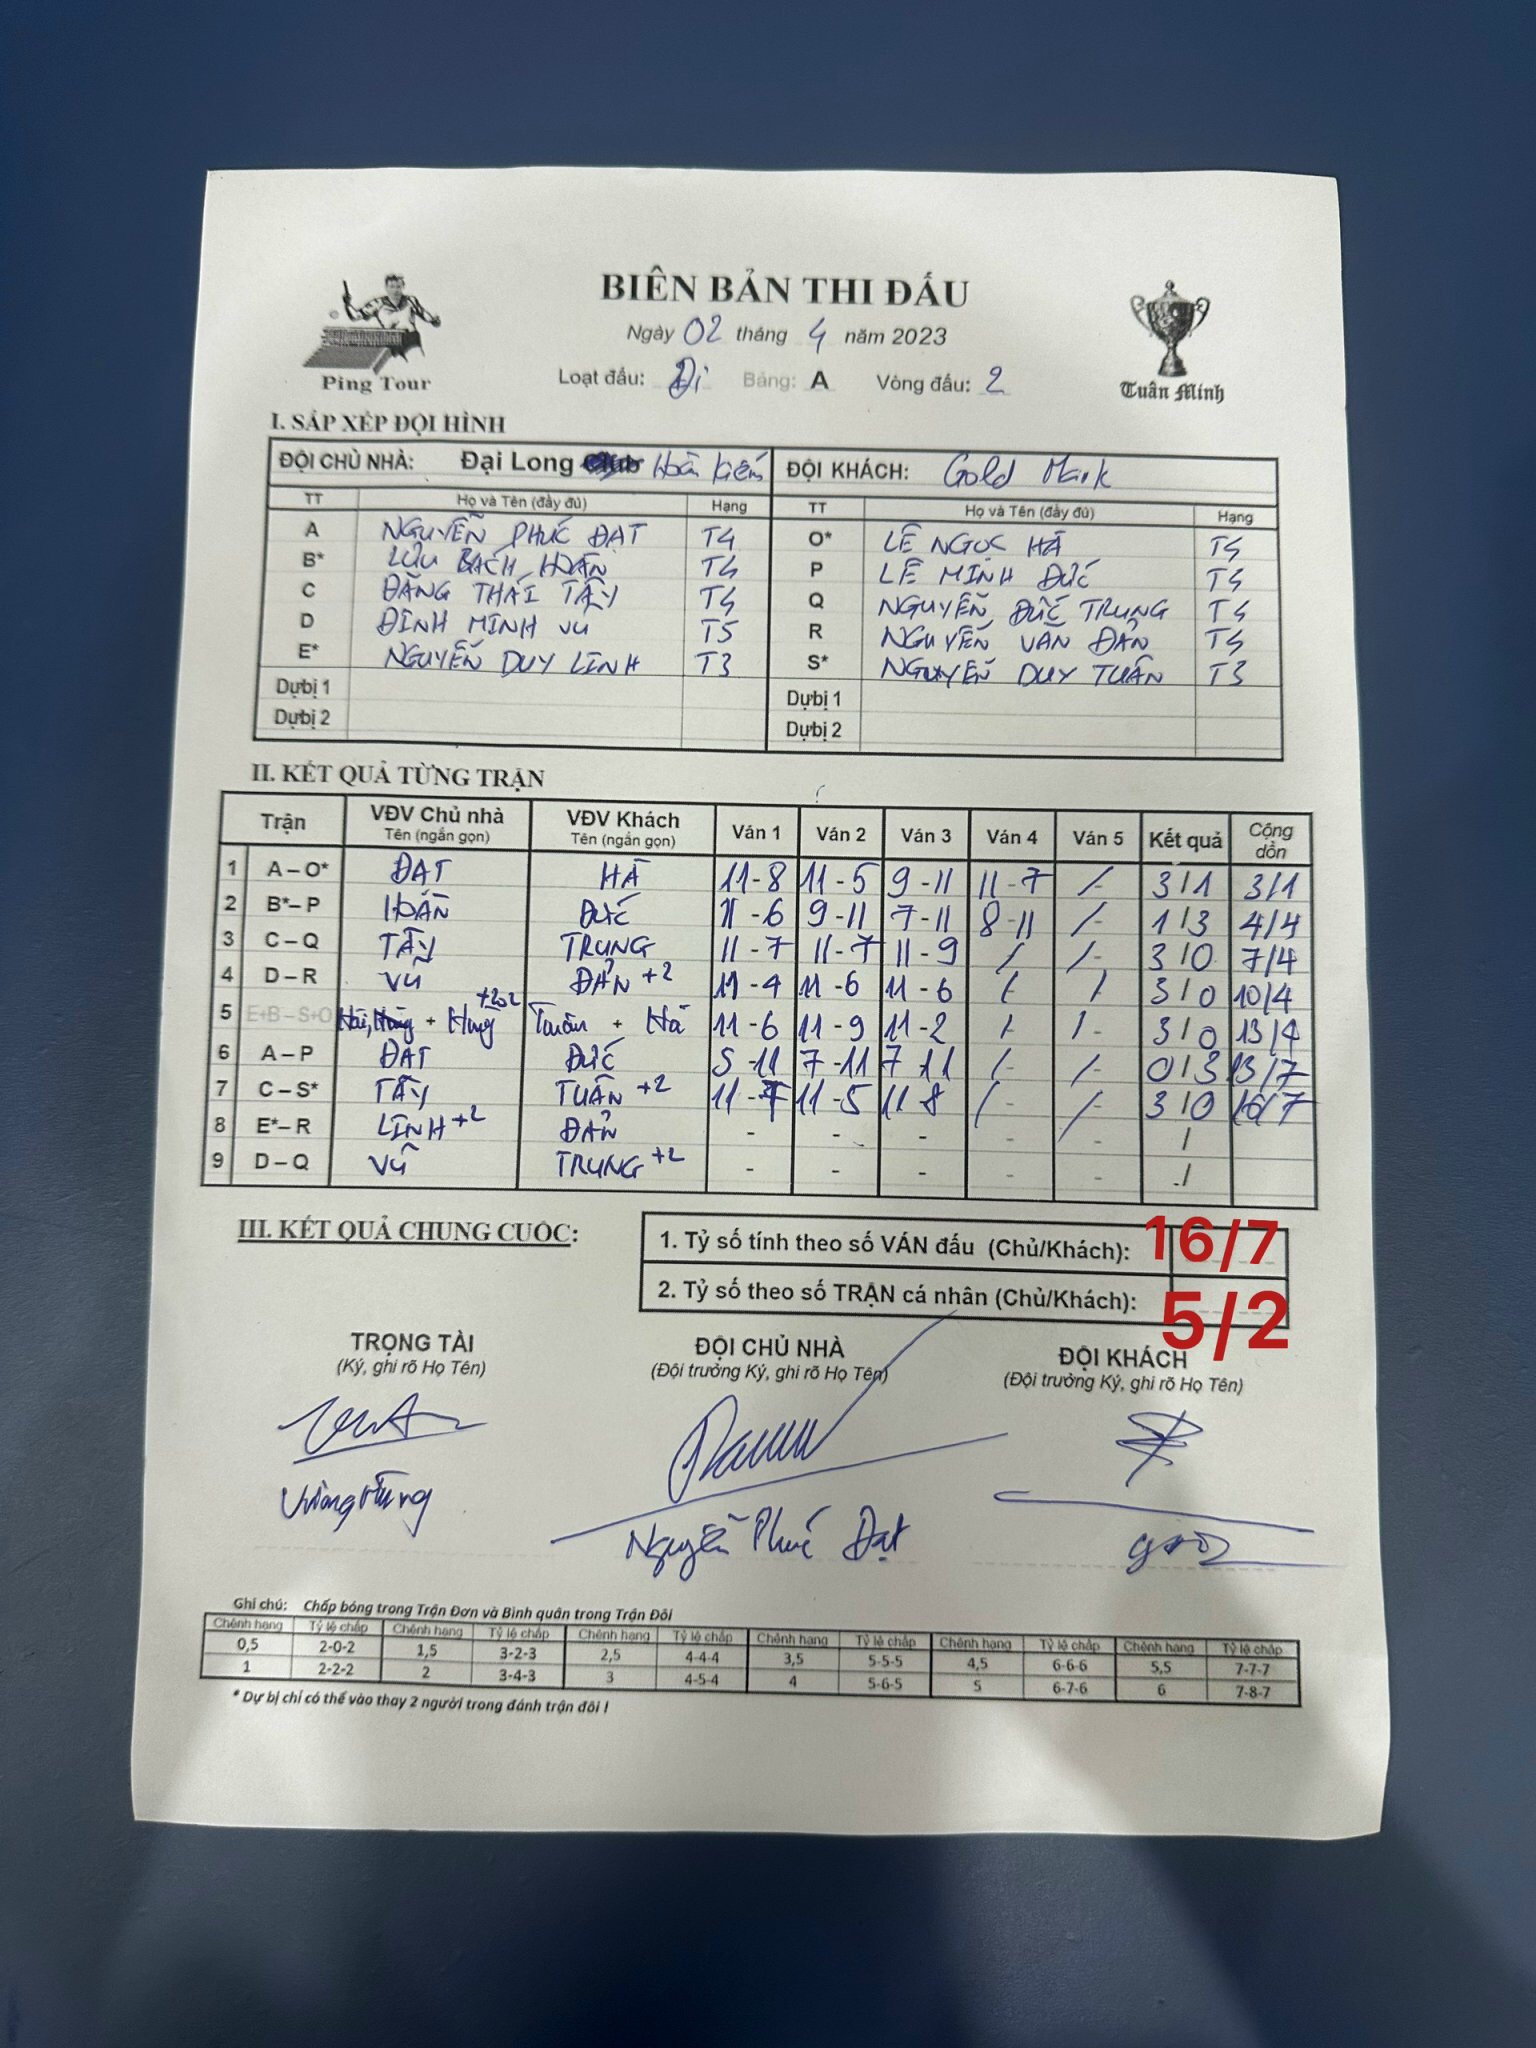 BIÊN BẢN THI ĐẤU
Ngày 02 tháng 4 năm 2023
Ping Tour
Loạt đấu: Đi Bảng: A Vòng đấu: 2
Tuân Minh
I. SẮP XẾP ĐỘI HÌNH
ĐỘI CHỦ NHÀ: Đại Long Hoàn Kiếm ĐỘI KHÁCH: Gold Mark
TT Họ và Tên (đầy đủ) Hạng TT Họ và Tên (đầy đủ) Hạng
A NGUYỄN PHÚC ĐẠT T4 O* LÊ NGỌC HÀ T4
B* LƯU BÁCH HOÀN T4 P LÊ MINH ĐỨC T4
C ĐẶNG THÁI TÂY T4 Q NGUYỄN ĐỨC TRUNG T4
D ĐINH MINH VŨ T5 R NGUYỄN VĂN ĐẢN T4
E* NGUYỄN DUY LINH T3 S* NGUYỄN DUY TUÂN T3
Dự bị 1 Dự bị 1
Dự bị 2 Dự bị 2
II. KẾT QUẢ TỪNG TRẬN
Trận VĐV Chủ nhà Tên (ngắn gọn) VĐV Khách Tên (ngắn gọn) Ván 1 Ván 2 Ván 3 Ván 4 Ván 5 Kết quả Cộng dồn
1 A – O* ĐẠT HÀ 11-8 11-5 9-11 11-7 /- 3/1 3/1
2 B* – P HOÀN ĐỨC 11-6 9-11 7-11 8-11 /- 1/3 4/4
3 C – Q TÂY TRUNG 11-7 11-7 11-9 / /- 3/0 7/4
4 D – R VŨ ĐẢN +2 11-4 11-6 11-6 / / 3/0 10/4
5 E+B – S+O + Hùng +202 Tuân + Hà 11-6 11-9 11-2 / /- 3/0 13/4
6 A – P ĐẠT ĐỨC 5-11 7-11 7-11 /- /- 0/3 13/7
7 C – S* TÂY TUÂN +2 11-7 11-5 11-8 /- /- 3/0 16/7
8 E* – R LINH +2 ĐẢN - - - - - /
9 D – Q VŨ TRUNG +2 - - - - - /
III. KẾT QUẢ CHUNG CUỘC:
1. Tỷ số tính theo số VÁN đấu (Chủ/Khách): 16/7
2. Tỷ số theo số TRẬN cá nhân (Chủ/Khách): 5/2
TRỌNG TÀI ĐỘI CHỦ NHÀ ĐỘI KHÁCH
(Ký, ghi rõ Họ Tên) (Đội trưởng Ký, ghi rõ Họ Tên) (Đội trưởng Ký, ghi rõ Họ Tên)
Nguyễn Phúc Đạt
Ghi chú: Chấp bóng trong Trận Đơn và Bình quân trong Trận Đôi
Chênh hạng Tỷ lệ chấp Chênh hạng Tỷ lệ chấp Chênh hạng Tỷ lệ chấp Chênh hạng Tỷ lệ chấp Chênh hạng Tỷ lệ chấp Chênh hạng Tỷ lệ chấp
0,5 2-0-2 1,5 3-2-3 2,5 4-4-4 3,5 5-5-5 4,5 6-6-6 5,5 7-7-7
1 2-2-2 2 3-4-3 3 4-5-4 4 5-6-5 5 6-7-6 6 7-8-7
* Dự bị chỉ có thể vào thay 2 người trong đánh trận đôi !